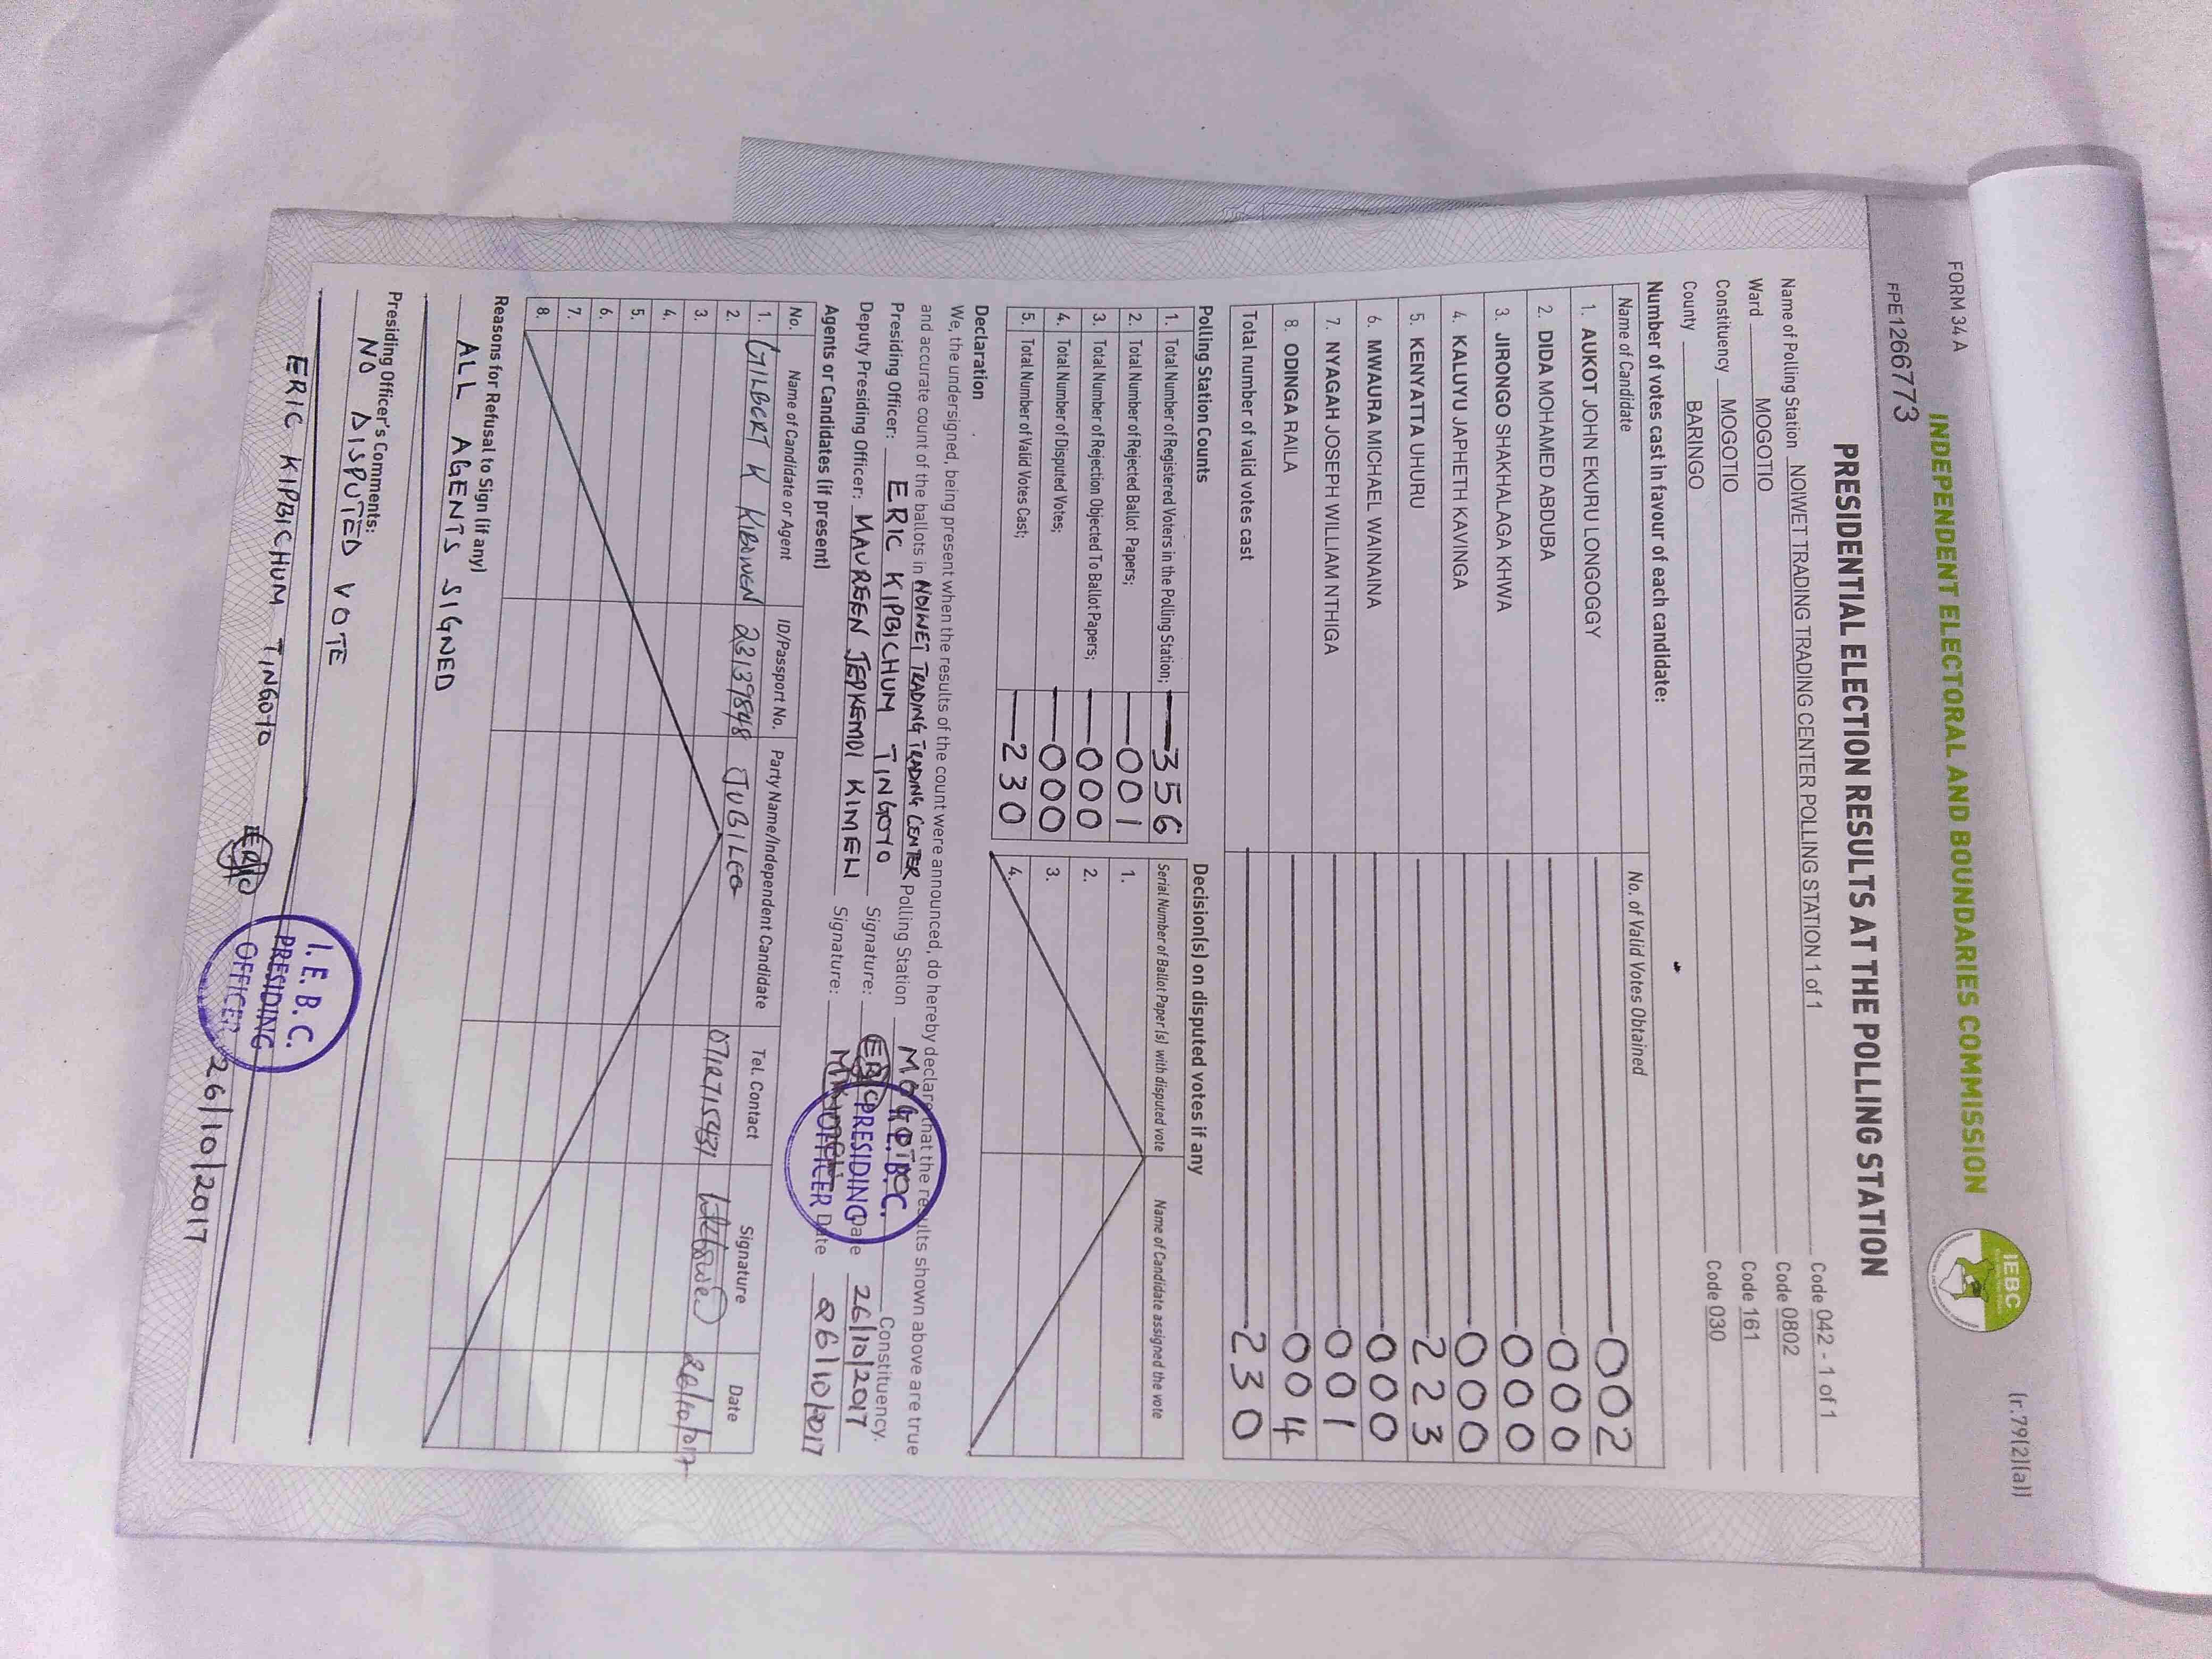 FORM 34 A
(r.79(2)(a))
INDEPENDENT ELECTORAL AND BOUNDARIES COMMISSION
IEBC
FPE126673
PRESIDENTIAL ELECTION RESULTS AT THE POLLING STATION
Name of Polling Station NOIWET TRADING TRADING CENTER POLLING STATION 1 of 1 Code 042 - 1 of 1
Ward MOGOTIO Code 0802
Constituency MOGOTIO Code 161
County BARINGO Code 030
Number of votes cast in favour of each candidate:
Name of Candidate No. of Valid Votes Obtained
1. AUKOT JOHN EKURU LONGOGGY 002
2. DIDA MOHAMED ABDUBA 000
3. JIRONGO SHAKHALAGA KHWA 000
4. KALUYU JAPHETH KAVINGA 000
5. KENYATTA UHURU 223
6. MWAURA MICHAEL WAINAINA 000
7. NYAGAH JOSEPH WILLIAM NTHIGA 001
8. ODINGA RAILA 004
Total number of valid votes cast 230
Polling Station Counts
1. Total Number of Registered Voters in the Polling Station; 356
2. Total Number of Rejected Ballot Papers; 001
3. Total Number of Rejection Objected To Ballot Papers; 000
4. Total Number of Disputed Votes; 000
5. Total Number of Valid Votes Cast; 230
Decision(s) on disputed votes if any
Serial Number of Ballot Paper(s) with disputed vote Name of Candidate assigned the vote
1.
2.
3.
4.
Declaration
We, the undersigned, being present when the results of the count were announced, do hereby declare that the results shown above are true
and accurate count of the ballots in NOIWET TRADING TRADING CENTER Polling Station MOGOTIO Constituency.
Presiding Officer: ERIC KIPBICHUM TINGOYO Signature: Date 26/10/2017
Deputy Presiding Officer: MAUREEN JEPKEMOI KIMELI Signature: Date 26/10/2017
I.E.B.C.
PRESIDING
OFFICER
Agents or Candidates (if present)
No. Name of Candidate or Agent ID/Passport No. Party Name/Independent Candidate Tel. Contact Signature Date
1. GILBERT K KIBOWEN 23139848 JUBILEE 26/10/2017
2.
3.
4.
5.
6.
7.
8.
Reasons for Refusal to Sign (if any)
ALL AGENTS SIGNED
Presiding Officer's Comments:
NO DISPUTED VOTE
ERIC KIPBICHUM TINGOYO 26/10/2017
I.E.B.C.
PRESIDING
OFFICER